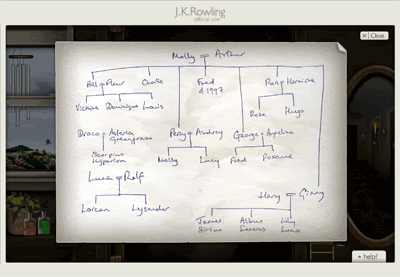 J.K.Rowling
official site
Close
Molly = Arthur
Bill = Fleur Charlie Fred Ron = Hermione
d.1997
Victoire Dominique Louis Rose Hugo
Draco = Astoria Percy = Audrey George = Angelina
Greengrass
Scorpius Molly Lucy Fred Roxanne
Hyperion
Luna = Rolf
Harry = Ginny
Lorcan Lysander James Albus Lily
Sirius Severus Luna
help!